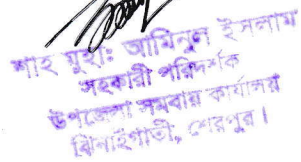 শাহ মুহাঃ আমিনুল ইসলাম
সহকারী পরিদর্শক
উপজেলা সমবায় কার্যালয়
ঝিনাইগাতী, শেরপুর।